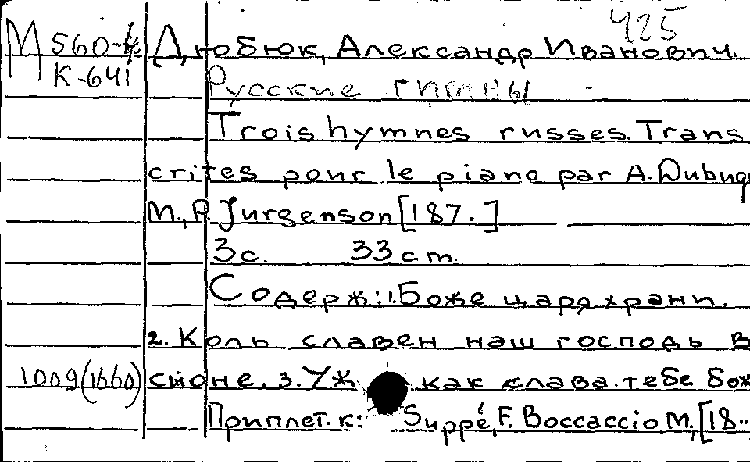 425
М 560-4 Дюбюк, Александр Иванович.
К-641
Русские гимны
Trois hymnes russes. Trans
crites pour le piano par A. Dubuq
M., P. Jurgenson [187.]
3с. 33 cm.
Содерж: 1. Боже царя храни.
2. Коль славен наш господь в
1009(1660) сионе. 3. Уж как слава тебе бож
Приплет. к: Suppé, F. Boccaccio M., [18..